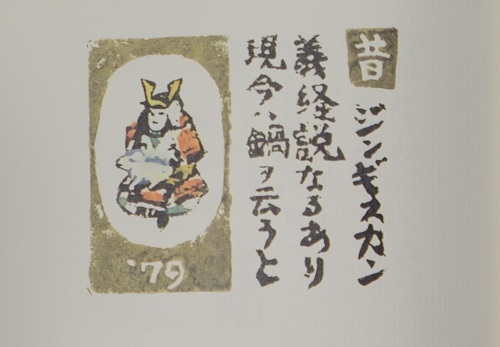 昔
ジンギスカン
義経説なるあり
現今ハ鍋ヲ云うと
'79